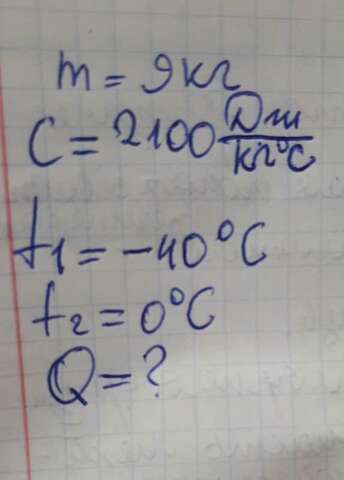 m = 9кг
C = 2100 Дж/кг°C
t₁ = -40°C
t₂ = 0°C
Q = ?